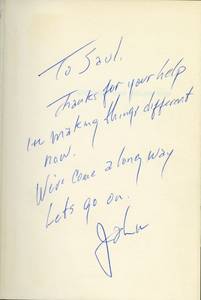 To Saul.
Thanks for your help
in making things different
now.
We've come a long way
Lets go on.
John